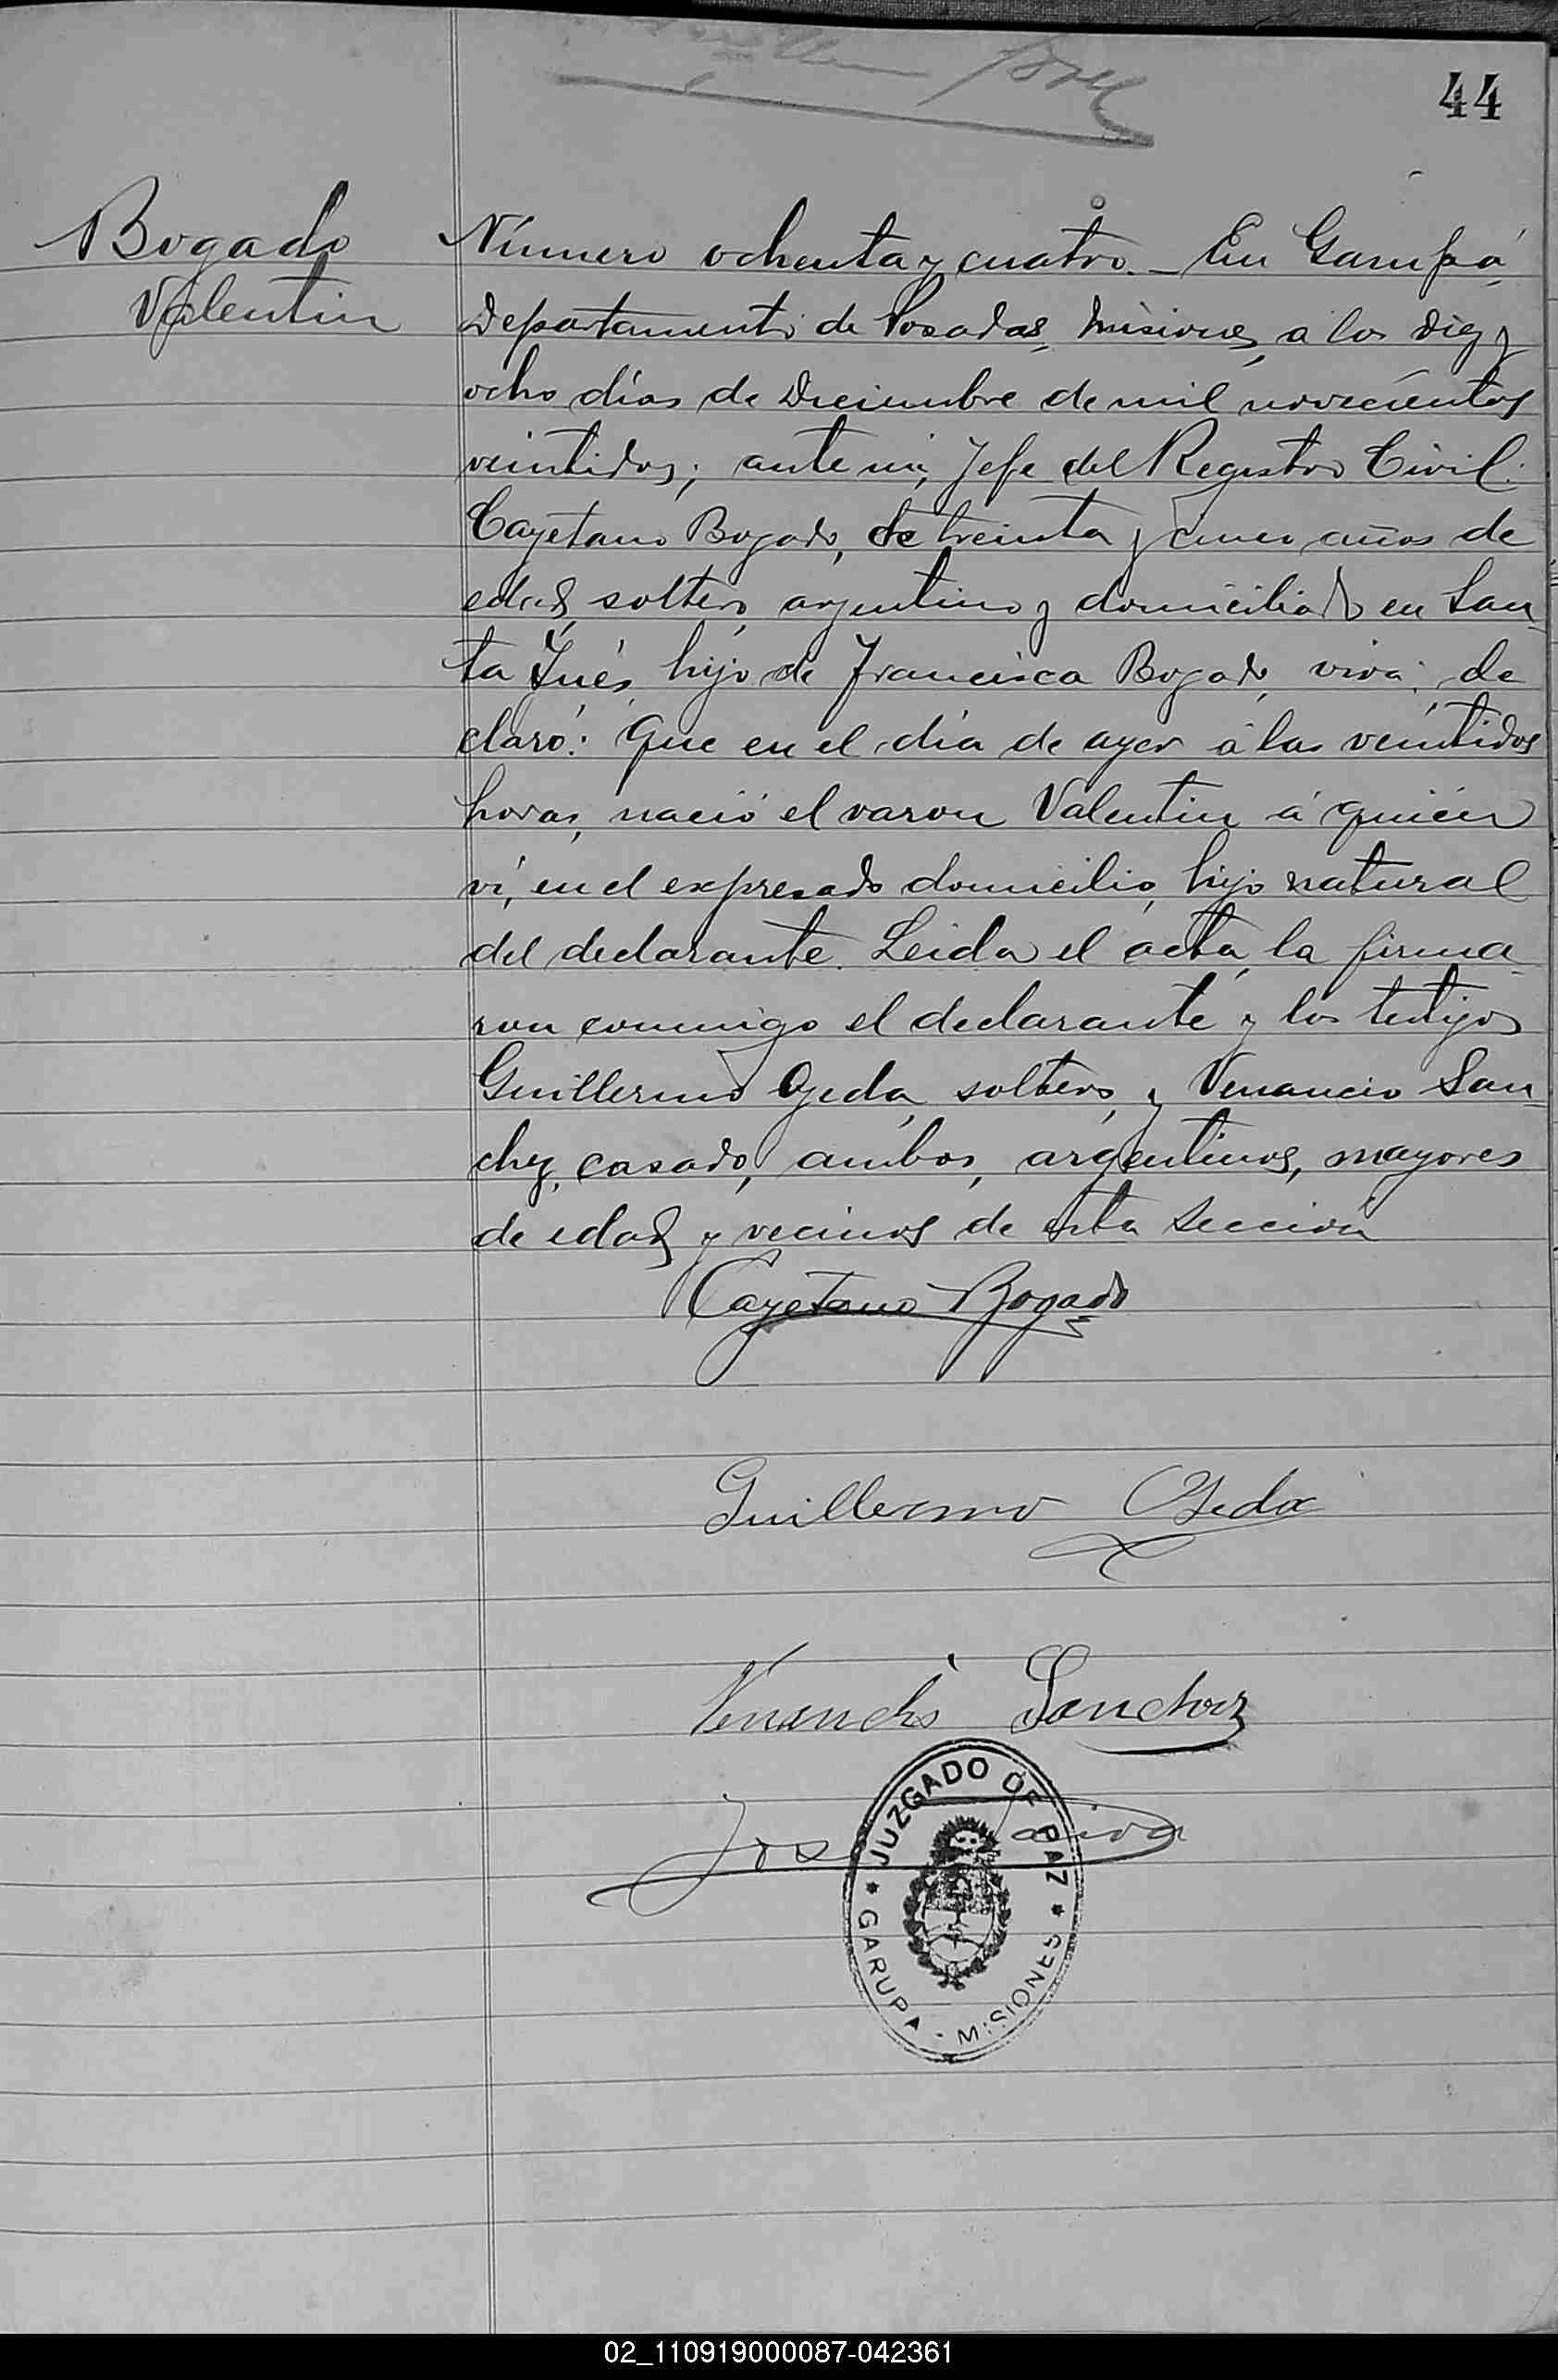 44
Bogado
Valentin
Número ochenta y cuatro. _ En Garupá,
Departamento de Posadas, Misiones, a los diez y
ocho días de Diciembre de mil novecientos
veintidos; ante mi, Jefe del Registro Civil.
Cayetano Bogado, de treinta y cinco años de
edad, soltero, argentino y domiciliado en San_
ta Inés, hijo de Francisca Bogado, viva; de
claró: Que en el día de ayer á las veintidos
horas, nació el varon Valentin á quién
ví, en el expresado domicilio, hijo natural
del declarante. Leida el acta, la firma_
ron conmigo el declarante y los testigos
Guillermo Ojeda, soltero, y Venancio San_
chez, casado, ambos, argentinos, mayores
de edad y vecinos de esta Sección
Cayetano Bogado
Guillermo Ojeda
Venancio Sanchez
José
JUZGADO DE PAZ
GARUPA - MISIONES
02_110919000087-042361